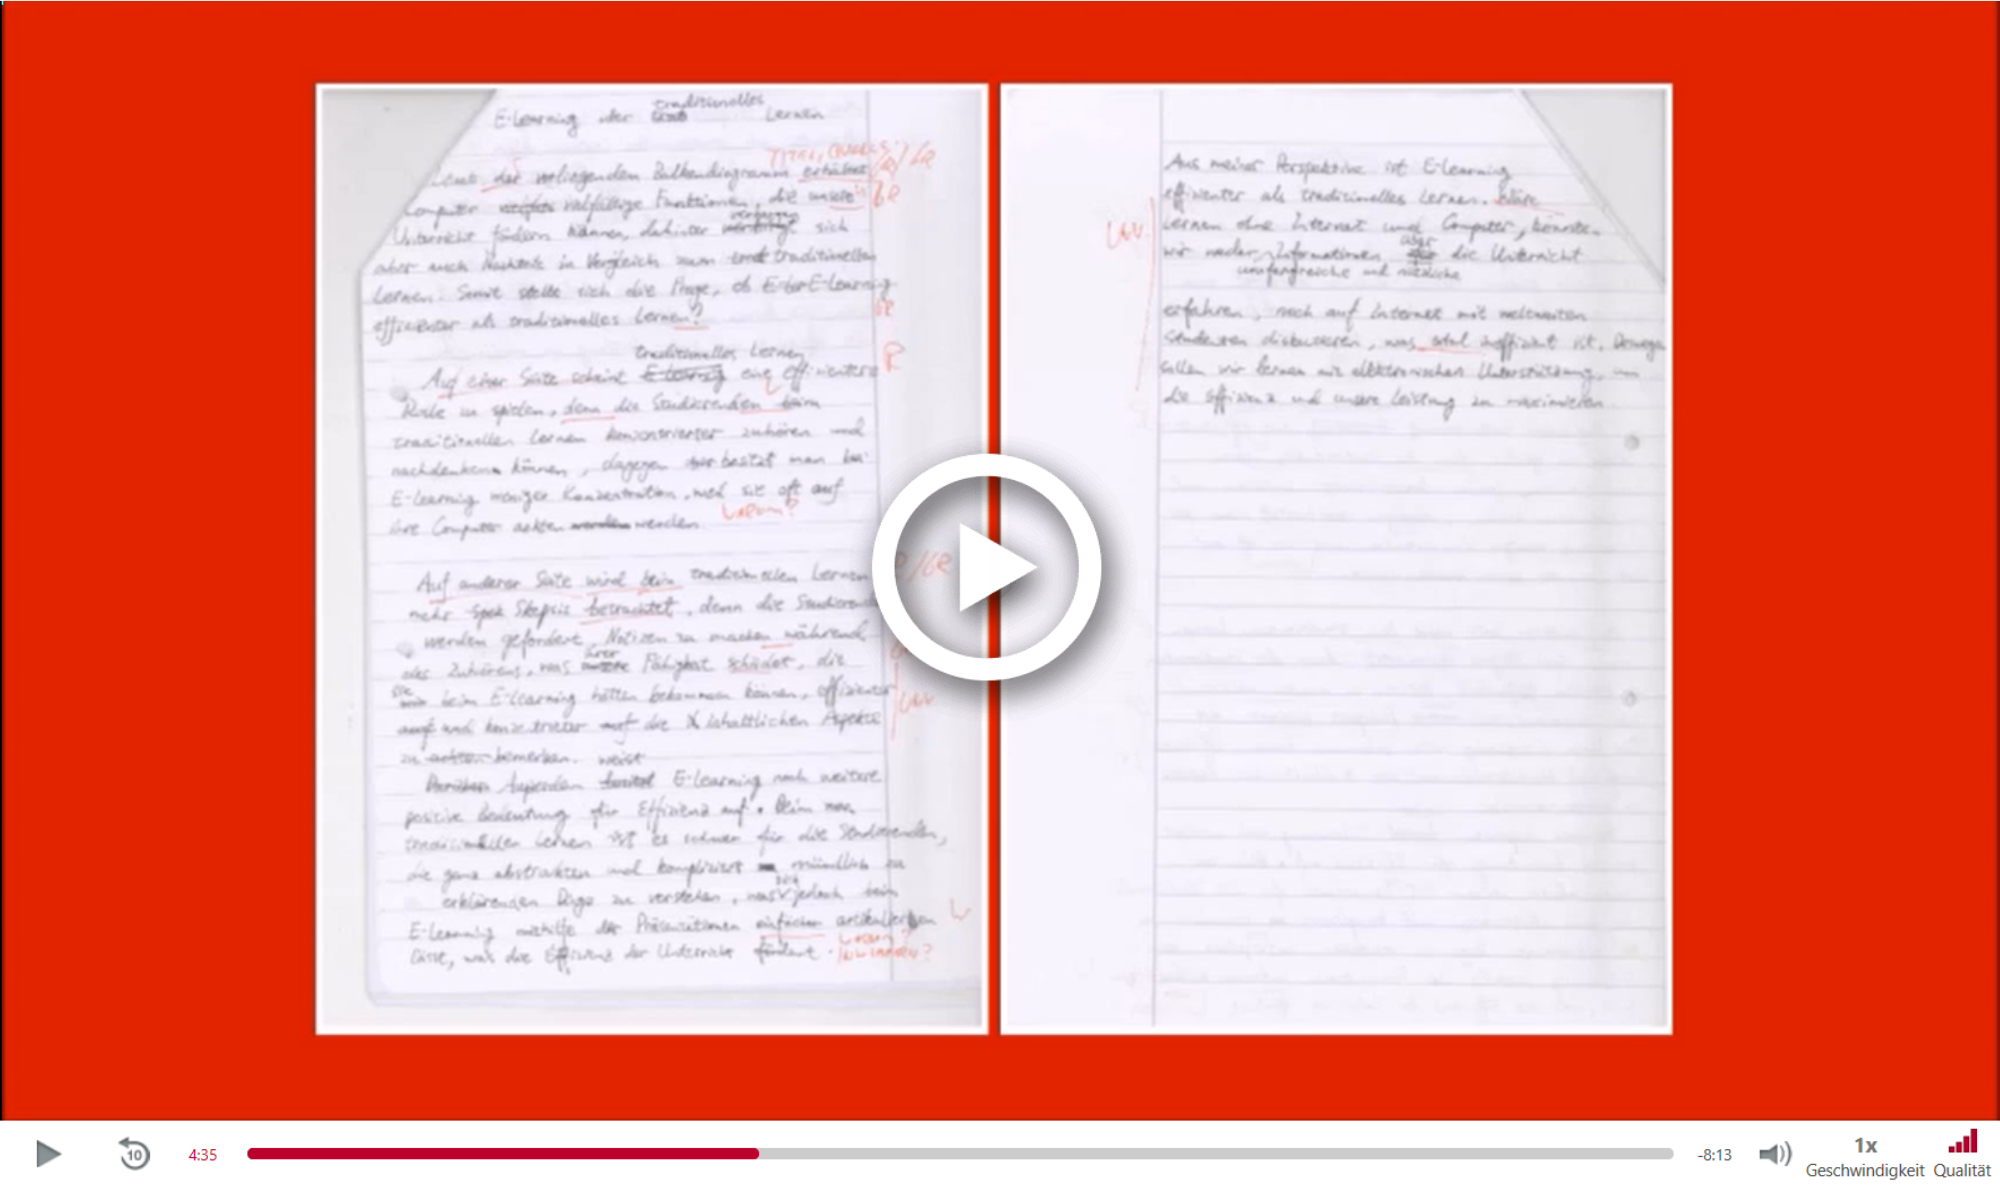 traditionelles
E-Learning oder Lernen
TITEL, QUELLE?
Laut der vorliegenden Balkendiagramm erhalten
Computer vielfältige Funktionen, die unsere
Unterricht fördern können, dahinter verbergen sich
aber auch Nachteile in Vergleich zum traditionellen
Lernen. Somit stellt sich die Frage, ob E-Learning
effizienter als traditionelles Lernen?
traditionelles Lernen
Auf einer Seite scheint E-Learning eine effizientere R
Rolle zu spielen, denn die Studierenden beim
traditionellen Lernen konzentrierter zuhören und
nachdenken können, dagegen besitzt man bei
E-Learning weniger Konzentration, weil sie oft auf
ihre Computer achten werden werden.
Warum?
Auf anderer Seite wird beim traditionellen Lernen
mehr Skepsis betrachtet, denn die Studierende
werden gefordert, Notizen zu machen während
des Zuhörens, was ihrer Fähigkeit schadet, die
sie beim E-Learning hätten bekommen können, effizienter
und auf die inhaltlichen Aspekte
zu achten bemerken. weist
Außerdem E-Learning noch weitere
positive Bedeutung für Effizienz auf. Beim
traditionellen Lernen ist es schwer für die Studierenden,
die ganz abstrakten und kompliziert mündlich zu
erklärenden Dinge zu verstehen, was jedoch beim
sich
E-Learning mithilfe der Präsentationen einfacher artikulieren
lässt, was die Effizienz der Unterricht fördert.
Aus meiner Perspektive ist E-Learning
effizienter als traditionelles Lernen. Wäre
Lernen ohne Internet und Computer, könnten
wir weder Informationen über die Unterricht
umfangreiche und nützliche
erfahren, noch auf Internet mit weltweiten
Studenten diskutieren, was total ineffizient ist. Deswegen
sollen wir lernen mit elektronischen Unterstützung, um
die Effizienz und unsere Leistung zu maximieren.
10
4:35
-8:13
1x
Geschwindigkeit Qualität